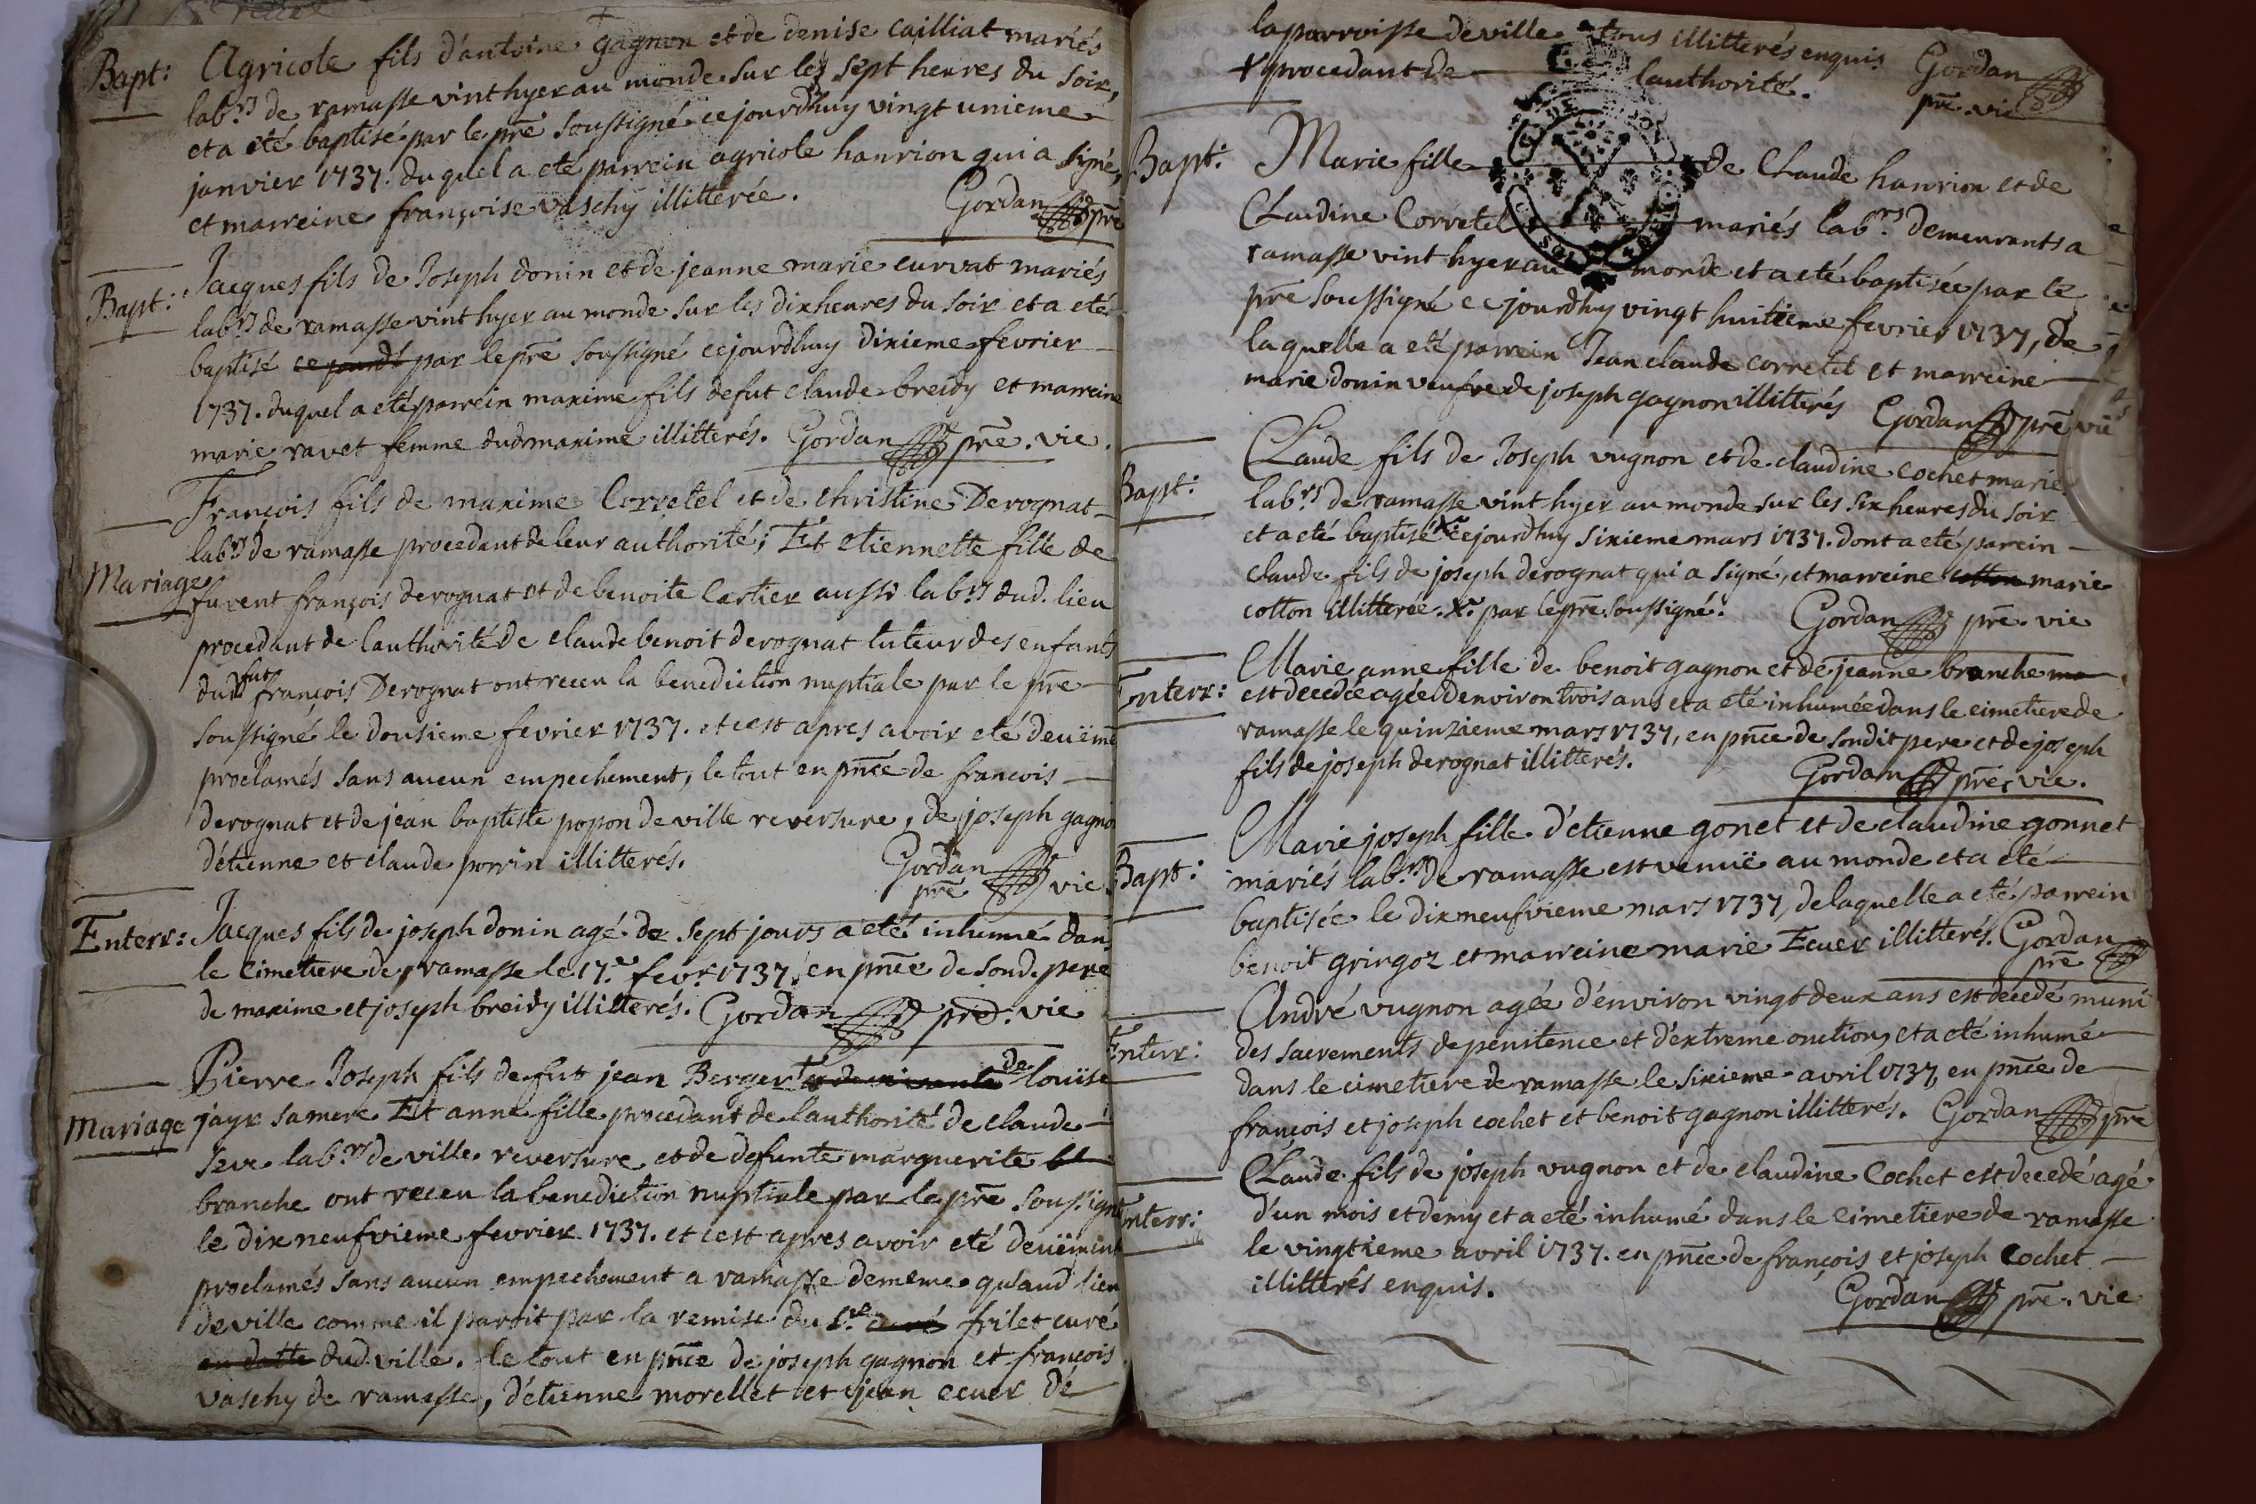 Bapt: Agricole fils d'antoine gagnon et de denise cailliat mariés
labrs de ramasse vint hyer au monde sur les sept heures du soir,
et a eté baptisé par le pre soussigné cejourdhuy vingt unieme
janvier 1737. duquel a eté parrein agricole hanrion qui a signé,
et marreine françoise vaschy illitterée. Gordan pre
Bapt: Jacques fils de Joseph donin et de jeanne marie curvat mariés
labrs de ramasse vint hyer au monde sur les dix heures du soir et a eté
baptisé par le pre soussigné cejourdhuy dixieme fevrier
1737. duquel a eté parrein maxime fils de fut claude breidy et marreine
marie ravet femme dud maxime illitterés. Gordan pre. vic.
François fils de maxime Corretel et de christine Derognat
labrs de ramasse procedant de leur authorité; Et etiennette fille de
Mariage furent françois derognat et de benoite Cartier aussi labrs dud. lieu
procedant de lauthorité de claude benoit derognat tuteur des enfants
dud fut françois Derognat ont receu la benediction nuptiale par le pre
soussigné le dousieme fevrier 1737. et cest apres avoir eté deuëmt
proclamés sans aucun empechement, le tout en pnce de francois
derognat et de jean baptiste popon de ville reversure, de joseph gagno
d'étienne et claude porrin illitterés. Gordan
pre vic
Enterr: Jacques fils de joseph donin agé de sept jours a eté inhumé dans
le Cimetiere de ramasse le 17.e fevr 1737. en pnce de sond. pere
de maxime et joseph breidy illitterés. Gordan pre. vic
Pierre Joseph fils de fut jean Berger de louise
Mariage jayr sa mere Et anne fille procedant de lauthorité de claude
seve labrs de ville reversure et de defunte marguerite
branche ont receu la benediction nuptiale par le pre soussigné
le dix neufvieme fevrier 1737. et cest apres avoir eté deuëment
proclamés sans aucun empechement a ramasse de meme qu'aud lieu
de ville comme il paroit par la remise du Sr frilet curé
dud. ville. le tout en pnce de joseph gagnon et françois
vaschy de ramasse, d'étienne morellet et jean ecuer de
la parroisse de ville tous illitterés enquis Gordan
+ procedant de lauthorité. pre. vic
Bapt: Marie fille de Claude hanrion et de
Claudine Corretel mariés labrs demeurants a
ramasse vint hyer au monde et a eté baptisée par le
pre soussigné cejourdhuy vingt huitieme fevrier 1737, de
laquelle a eté parrein Jean claude corretel et marreine
marie donin veufve de joseph gagnon illitterés Gordan pre vic
Claude fils de Joseph vugnon et de claudine cochet marié
Bapt: labrs de ramasse vint hyer au monde sur les six heures du soir
et a eté baptisé X cejourdhuy sixieme mars 1737. dont a eté parein
claude fils de joseph derognat qui a signé, et marreine cotton marie
cotton illitterée. X. par le pre soussigné. Gordan pre. vic
Marie anne fille de benoit gagnon et de jeanne branche
Enterr: est decedée agée d'environ trois ans et a eté inhumée dans le cimetiere de
ramasse le quinzieme mars 1737, en pnce de sondit pere et de joseph
fils de joseph derognat illitterés. Gordan pre. vic.
Marie joseph fille d'étienne gonet et de claudine gonnet
Bapt: mariés labrs de ramasse est venuë au monde et a eté
baptisée le dix neufvieme mars 1737, de laquelle a eté parrein
benoit gringoz et marreine marie Ecuer illitterés. Gordan
pre
André vugnon agée d'environ vingt deux ans est decedé muni
Enterr: des sacrements de penitence et d'extreme onction, et a eté inhumé
dans le cimetiere de ramasse le sixieme avril 1737, en pnce de
françois et joseph cochet et benoit gagnon illitterés. Gordan pre
Claude fils de joseph vugnon et de claudine Cochet est decedé agé
Enterr: d'un mois et demy et a eté inhumé dans le Cimetiere de ramasse
le vingtieme avril 1737. en pnce de françois et joseph Cochet
illitterés enquis. Gordan pre. vic